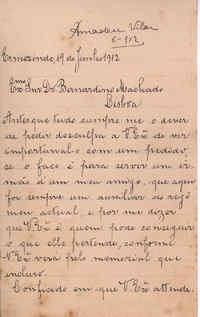 Amadeu Vilar
6-912
Ermezinde, 19 de Junho 1912
Exmo Snr Dr Bernardino Machado
Lisboa
Antes que tudo cumpre-me o dever
de pedir desculpa a V. Exª de vir
importunal-o com um pedido,
se o faço é para servir um ir-
mão d'um meu amigo, que agen
for sempre um auxiliar no
meu actual e por me dizer
que V. Exª é quem pode conseguir
o que elle pertende, conforme
V. Exª verá pelo memorial que
incluso.
Confiado em que V. Exª attende